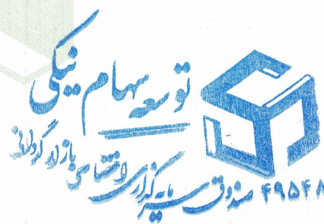 توسعه سهام نیکی
صندوق سرمایه گذاری اختصاصی بازارگردانی
۴۹۵۴۸